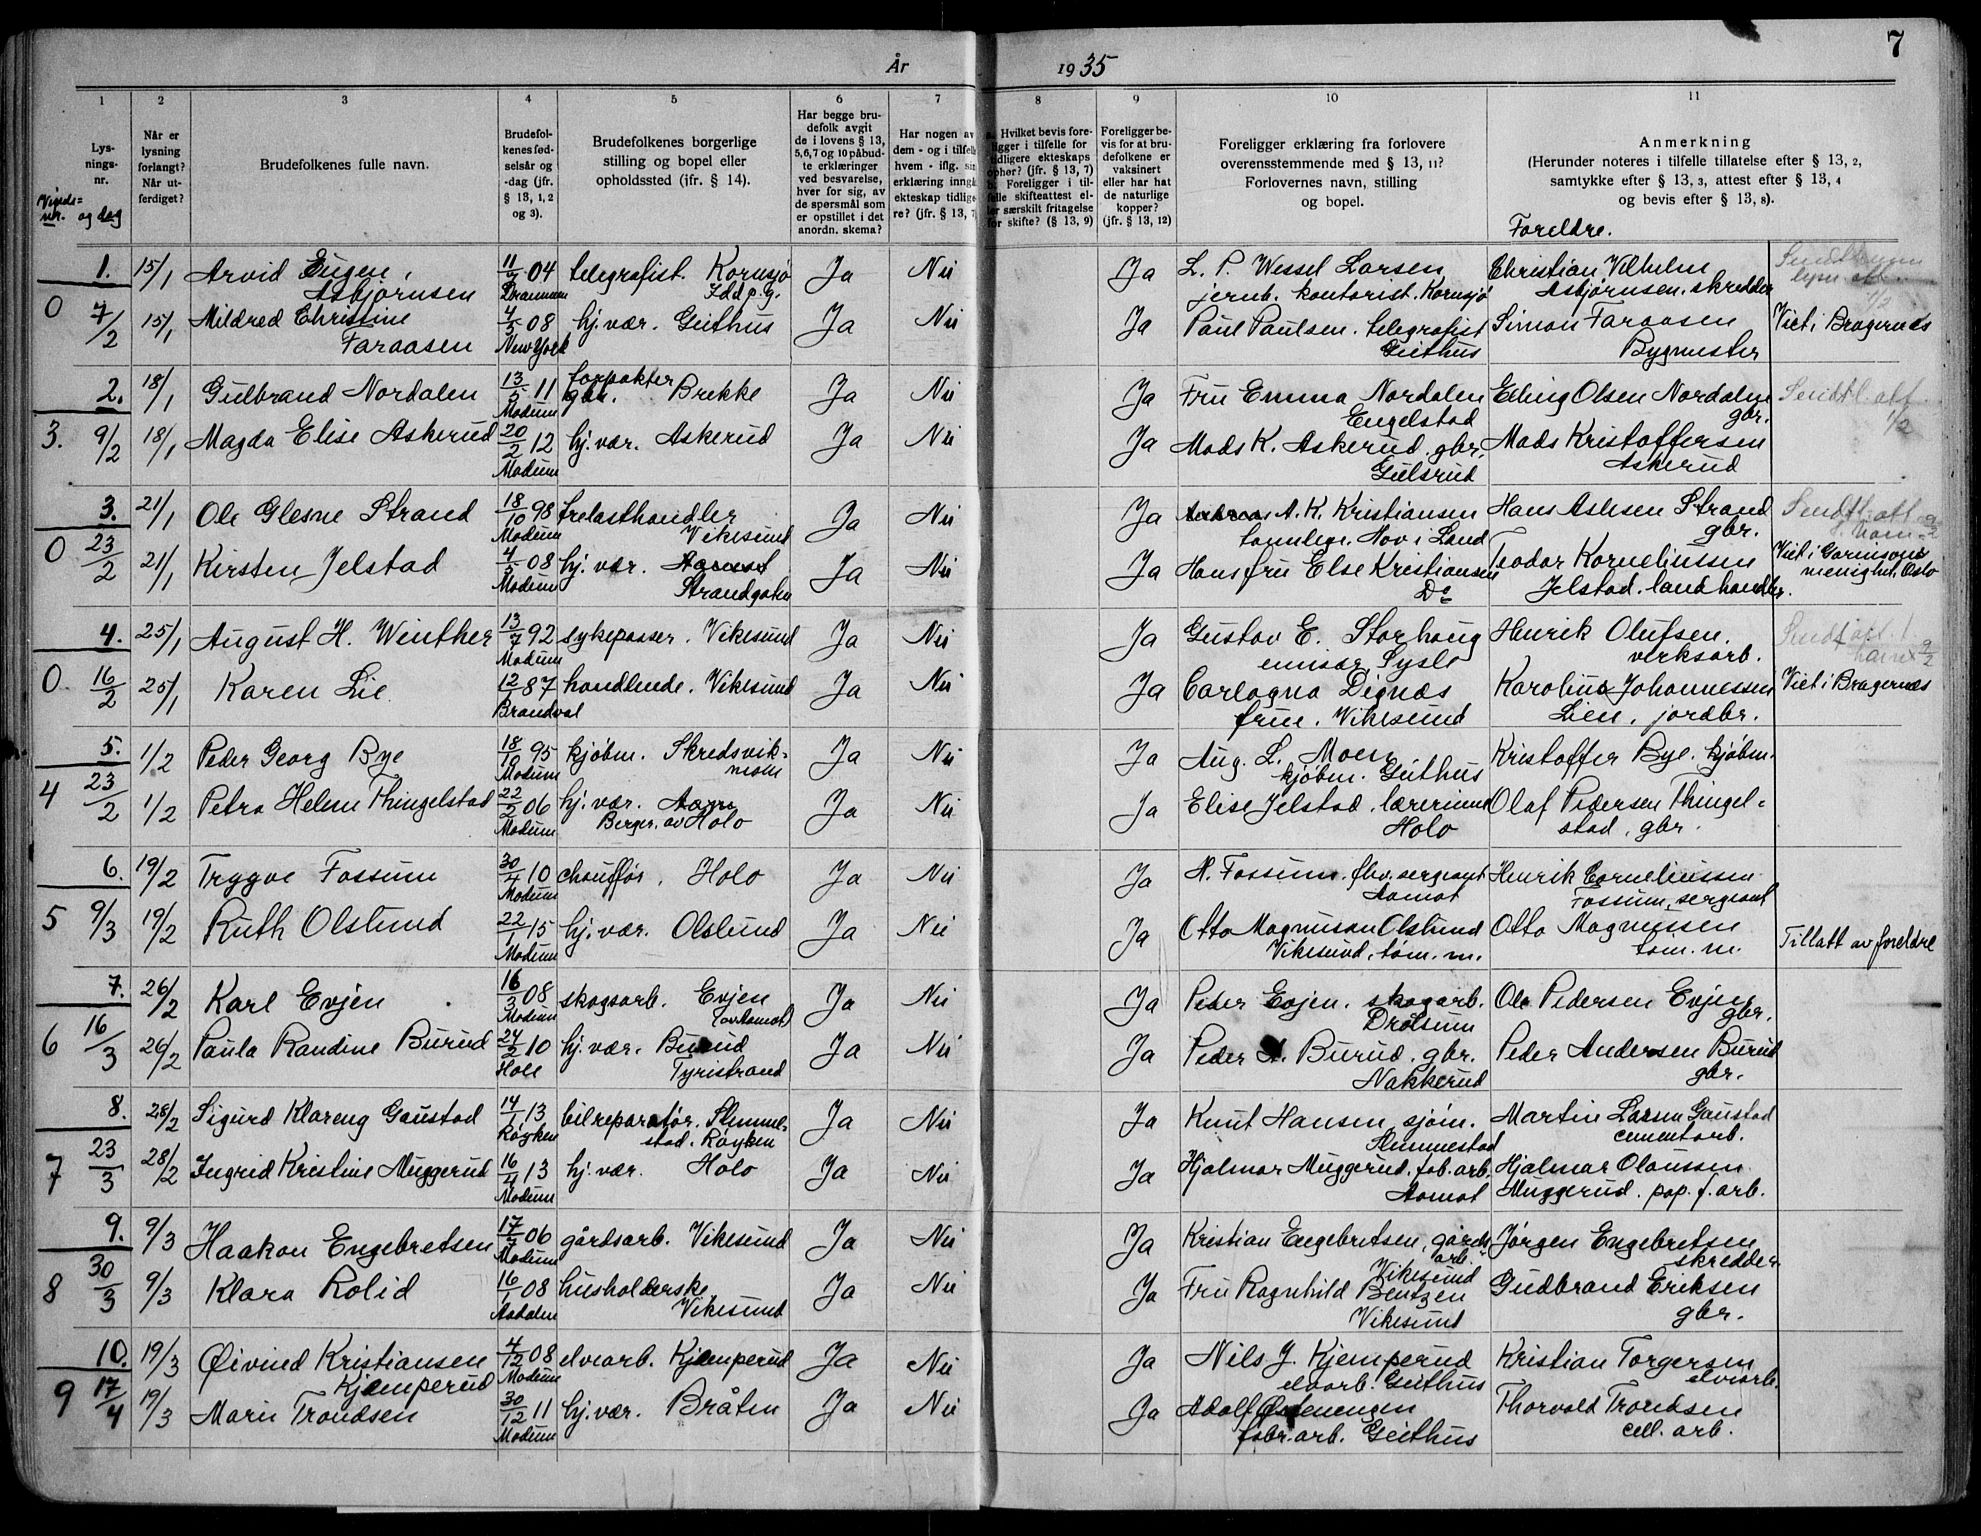 7
År 1935
1 2 3 4 5 6 7 8 9 10 11
Lysningsnr. og dag
Vigselsnr.
Når er lysning forlangt? Når utferdiget?
Brudefolkenes fulle navn.
Brudefolkenes fødselsår og -dag (jfr. § 13, 1, 2 og 3).
Brudefolkenes borgerlige stilling og bopel eller opholdssted (jfr. § 14).
Har begge brudefolk avgit de i lovens § 13, 5,6,7 og 10 påbudte erklæringer ved besvarelse, hver for sig, av de spørsmål som er opstillet i det anordn. skema?
Har nogen av dem - og i tilfelle hvem - iflg. sin erklæring inngå ekteskap tidlige re? (jfr. § 13, 7
a. Hvilket bevis foreligger i tilfelle for tidligere ekteskaps ophør? (jfr. § 13, 7) b. Foreligger i tilfelle skifteattest eller særskilt fritagelse for skifte? (§ 13, 9)
Foreligger bevis for at brudefolkene er vaksinert eller har hat de naturlige kopper? (jfr. § 13, 12)
Foreligger erklæring fra forlovere overensstemmende med § 13, 11? Forlovernes navn, stilling og bopel.
Anmerkning (Herunder noteres i tilfelle tillatelse efter § 13, 2, samtykke efter § 13, 3, attest efter § 13, 4 og bevis efter § 13, 8).
Foreldre.
1. 15/1 Arvid Eugen Asbjørnsen 11/7 04 Drammen telegrafist. Kornsjø Idd p.g. Ja Nei Ja L. P. Wessel Larsen jernb. kontorist. Kornsjø Christian Vilhelm Asbjørnsen. skredder
0 7/2 15/1 Mildred Christine Faraasen 4/5 08 New York hj. vær. Geithus Ja Nei Ja Paul Paulsen. telegrafist Geithus Simon Faraasen Bygmester Viet i Bragernes
2. 18/1 Gulbrand Nordalen 13/5 11 Modum forpakter gbr. Brekke Ja Nei Ja Fru Emma Nordalen Engelstad Erling Olsen Nordalen gbr. Sendt l. att. 1/2
3. 9/2 18/1 Magda Elise Askerud 20/2 12 Modum hj. vær. Askerud Ja Nei Ja Mads K. Askerud gbr. Gulsrud Mads Kristoffersen Askerud
3. 21/1 Ole Glesne Strand 18/10 98 Modum trelasthandler Vikesund Ja Nei Ja A. K. Kristiansen tannlege. Hov i Land Hans Aslesen Strand gbr. Sendt l. att
0 23/2 21/1 Kirsten Jelstad 4/5 08 Modum hj. vær. Aamot Strandgaten Ja Nei Ja Hans fru Else Kristiansen Do Teodor Korneliussen Jelstad. landhandler. Viet i Garnisons menighet, Oslo
4. 25/1 August H. Winther 13/7 92 Modum sykepasser. Vikesund Ja Nei Ja Gustav E. Storhaug emisær Sysle Henrik Olufsen. verksarb.
0. 16/2 25/1 Karen Lie 12/ 87 Brandval handlende. Vikesund Ja Nei Ja Carlagna Dignæs frue. Vikesund Karolius Johannessen Lien. jordbr. Viet i Bragernes
5. 1/2 Peder Georg Bye 18/10 95 Modum kjøbm. Skredsvikmoen Ja Nei Ja Aug. L. Moen kjøbm. Geithus Kristoffer Bye. kjøbm.
4 23/2 1/2 Petra Helene Thingelstad 22/2 06 Modum hj. vær. Berger, av Holo Ja Nei Ja Elise Jelstad. lærerinne Holo Olaf Pedersen Thingelstad. gbr.
6. 19/2 Trygve Fossum 30/4 10 Modum chauffør. Holo Ja Nei Ja H. Fossum. fhv. sergeant Aamot Henrik Corneliussen Fossum, sergeant
5 9/3 19/2 Ruth Olslund 22/1 15 Modum hj. vær. Olslund Ja Nei Ja Otto Magnusson Olslund Vikesund, tøm. m. Otto Magnussen tøm. m. Tillatt av foreldre
7. 26/2 Karl Evjen 16/3 08 Modum skogsarb. Evjen (av Aamot) Ja Nei Ja Peder Evjen. skogarb. Drolsum Ole Pedersen Evjen gbr.
6 16/3 26/2 Paula Randine Burud 24/2 10 Hole hj. vær. Burud Tyristrand Ja Nei Ja Peder A. Burud. gbr. Nakkerud Peder Andersen Burud gbr.
8. 28/2 Sigurd Klareng Gaustad 14/1 13 Røyken bilreparatør. Slemmestad. Røyken Ja Nei Ja Knut Hansen sjøm. Slemmestad Martin Larsen Gaustad cementarb.
7 23/3 28/2 Ingrid Kristine Muggerud 16/4 13 Modum hj. vær. Holo Ja Nei Ja Hjalmar Muggerud, fab. arb. Aamot Hjalmar Olaussen Muggerud. pap. f. arb.
9. 9/3 Haakon Engebretsen 17/7 06 Modum gårdsarb. Vikesund Ja Nei Ja Kristian Engebretsen, gårdsarb. Vikesund Jørgen Engebretsen skredder
8 30/3 9/3 Klara Rolid 16/1 08 Aadalen husholderske Vikesund Ja Nei Ja Fru Ragnhild Bentzen Vikesund Gudbrand Eriksen gbr.
10. 19/3 Øivind Kristiansen Kjemperud 4/12 08 Modum elvearb. Kjemperud Ja Nei Ja Nils J. Kjemperud elvarb. Geithus Kristian Torgersen elvearb.
9 17/4 19/3 Marie Trondsen 30/12 11 Modum hj. vær. Bråten Ja Nei Ja Adolf Østenengen fabr. arb. Geithus Thorvald Trondsen cell. arb.